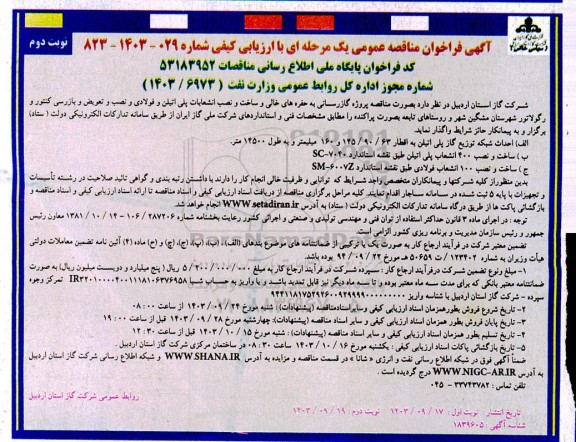 نوبت دوم
آگهی فراخوان مناقصه عمومی یک مرحله ای با ارزیابی کیفی شماره ۰۲۹ - ۱۴۰۳ - ۸۲۳
کد فراخوان پایگاه ملی اطلاع رسانی مناقصات ۵۳۱۸۳۹۵۲
شماره مجوز اداره کل روابط عمومی وزارت نفت ( ۶۹۷۳ / ۱۴۰۳ )
شرکت گاز استان اردبیل در نظر دارد بصورت مناقصه پروژه گازرسانی به حفره های خالی و ساخت و نصب انشعابات پلی اتیلن و فولادی و نصب و تعویض و بازرسی کنتور و
رگولاتور شهرستان مشگین شهر و روستاهای تابعه بصورت پراکنده را مطابق مشخصات فنی و استانداردهای شرکت ملی گاز ایران از طریق سامانه تدارکات الکترونیکی دولت ( ستاد )
برگزار و به پیمانکار حائز شرایط واگذار نماید.
الف) احداث شبکه توزیع گاز پلی اتیلن به اقطار ۶۳ / ۹۰ / ۱۲۵ و ۱۶۰ میلیمتر و به طول ۱۴۵۰۰ متر.
ب ) ساخت و نصب ۴۰۰ انشعاب پلی اتیلن طبق نقشه استاندارد SC-۷۰۴۰
ج ) ساخت نصب ۱۰۰ انشعاب فولادی طبق نقشه استاندارد SM-۶۰۰۷Z
بدین منظور از کلیه شرکتها و پیمانکاران متخصص واجد شرایط که توانایی و ظرفیت خالی انجام کار را دارند با داشتن رتبه بندی و گواهی تائید صلاحیت در رشته تأسیسات
و تجهیزات با پایه ۵ ثبت شده در سامانه ساجار اقدام نمایند. کلیه مراحل برگزاری مناقصه از دریافت اسناد ارزیابی کیفی و اسناد مناقصه تا ارائه اسناد ارزیابی کیفی و اسناد مناقصه و
بازگشائی پاکت ها از طریق درگاه سامانه تدارکات الکترونیکی دولت ( ستاد ) به آدرس WWW.setadiran.ir انجام خواهد شد.
توجه : در اجرای ماده ۳ قانون حداکثر استفاده از توان فنی و مهندسی تولیدی و صنعتی و اجرائی کشور رعایت بخشنامه شماره ۲۸۷۲۰۶ / ۱۰۶ - ۱۳۸۱/۱۰/۱۴ معاون رئیس
جمهور و رئیس سازمان مدیریت و برنامه ریزی کشور الزامی است.
تضمین معتبر شرکت در فرآیند ارجاع کار به صورت یک یا ترکیبی از ضمانتنامه های موضوع بندهای (الف)، (ب)، (پ)، (ج)، (چ) و (ح) ماده (۴) آئین نامه تضمین معاملات دولتی
هیأت وزیران به شماره ۱۲۳۴۰۲ / ت ۵۰۶۵۹ هـ مورخ ۲۲ / ۰۹ / ۹۴ بوده باشد.
۱- مبلغ ونوع تضمین شرکت درفرآیند ارجاع کار : سپرده شرکت در فرآیند ارجاع کار به مبلغ ۵/۲۰۰/۰۰۰/۰۰۰ ریال ( پنج میلیارد و دویست میلیون ریال) به صورت
ضمانتنامه معتبر بانکی که برای مدت سه ماه معتبر بوده و تا سه ماه دیگر نیز قابل تمدید باشد و یا واریز به حساب شبا تمرکز وجوه
سپرده - شرکت گاز استان اردبیل با شناسه واریز
۲- تاریخ شروع فروش بطورهمزمان اسناد ارزیابی کیفی و سایراسنادمناقصه (پیشنهادات): شنبه مورخ ۲۴ / ۰۹ / ۱۴۰۳ از ساعت ۰۰ : ۰۸
۳- تاریخ پایان فروش بطور همزمان اسناد ارزیابی کیفی و سایر اسناد مناقصه (پیشنهادات): چهارشنبه مورخ ۲۸ / ۰۹ / ۱۴۰۳ قبل از ساعت ۰۰ : ۱۹
۴- تاریخ تسلیم بطور همزمان اسناد ارزیابی کیفی و سایر اسناد مناقصه (پیشنهادات) : شنبه مورخ ۱۵ / ۱۰ / ۱۴۰۳ قبل از ساعت ۳۰ : ۱۲
۵- تاریخ بازگشائی پاکات اسناد ارزیابی کیفی : یکشنبه مورخ ۱۶ / ۱۰ / ۱۴۰۳ ساعت ۳۰ : ۰۸ در ساختمان مرکزی شرکت گاز استان اردبیل .
ضمناً آگهی فوق در شبکه اطلاع رسانی نفت و انرژی « شانا » در قسمت مناقصه و مزایده به آدرس WWW.SHANA.IR و شبکه اطلاع رسانی شرکت گاز استان اردبیل
به آدرس WWW.NIGC-AR.IR درج گردیده است .
تلفن تماس : ۳۳۷۴۳۷۸۲ - ۰۴۵
روابط عمومی شرکت گاز استان اردبیل
تاریخ انتشار نوبت اول : ۱۷ / ۰۹ / ۱۴۰۳ نوبت دوم : ۱۹ / ۰۹ / ۱۴۰۳
شناسه آگهی : ۱۸۳۹۶۰۵